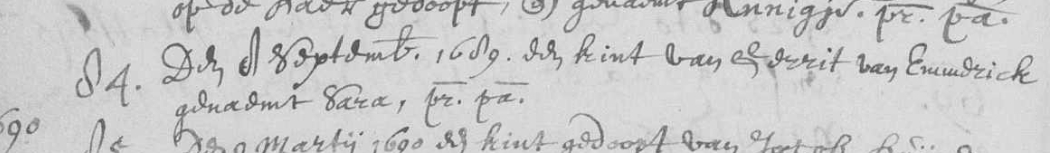 op de gedoopt, genaemt Annigje. pr. pa.
84. Den 8 Septemb. 1689. een kint van Gerrit van Emmerick
genaemt Sara, pr. pa.
690
Den 9 Martij 1690 een kint gedoopt van